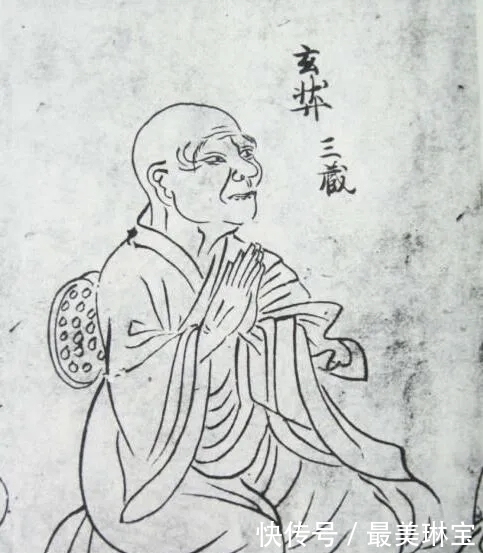 玄奘三蔵
快传号 / 最美琳宝